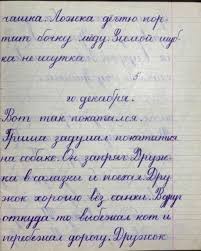 чашка. Ложка дёгтю пор-
тит бочку мёду. Зимой шуб-
ка не шутка.
10 декабря.
Вот так покатался.
Гриша задумал покататься
на собаке. Он запряг Друж-
ка в салазки и поехал. Дру
жок хорошо вёз санки. Вдруг
откуда-то выбежал кот и
перебежал дорогу. Дружок